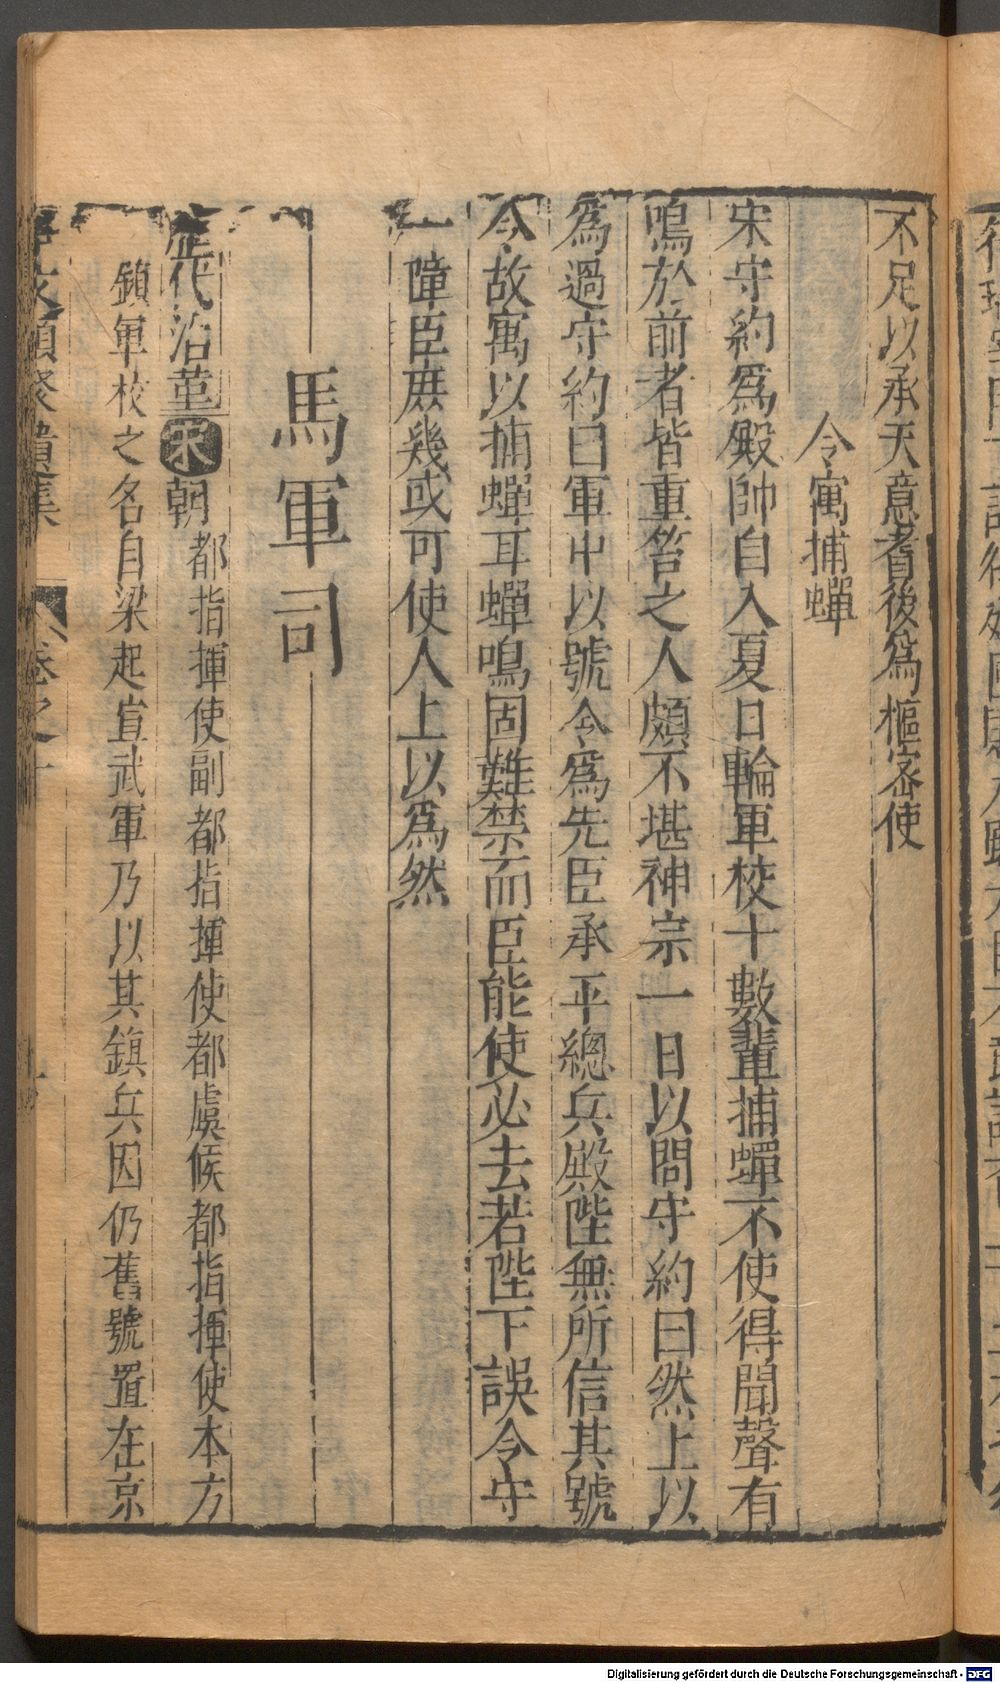 不足以承天意者後爲樞密使
令寓捕蟬
宋守約爲殿帥自入夏日輪軍校十數輩捕蟬不使得聞聲有
鳴於前者皆重笞之人頗不堪神宗一日以問守約曰然上以
爲過守約曰軍中以號令爲先臣承平總兵殿陛無所信其號
令故寓以捕蟬耳蟬鳴固難禁而臣能使必去若陛下誤令守
一障臣庶幾或可使人上以爲然
馬軍司
歷代沿革宋朝都指揮使副都指揮使都虞候都指揮使本方
鎮軍校之名自梁起宣武軍乃以其鎮兵因仍舊號置在京
事文類聚遺集 卷之十
Digitalisierung gefördert durch die Deutsche Forschungsgemeinschaft - DFG